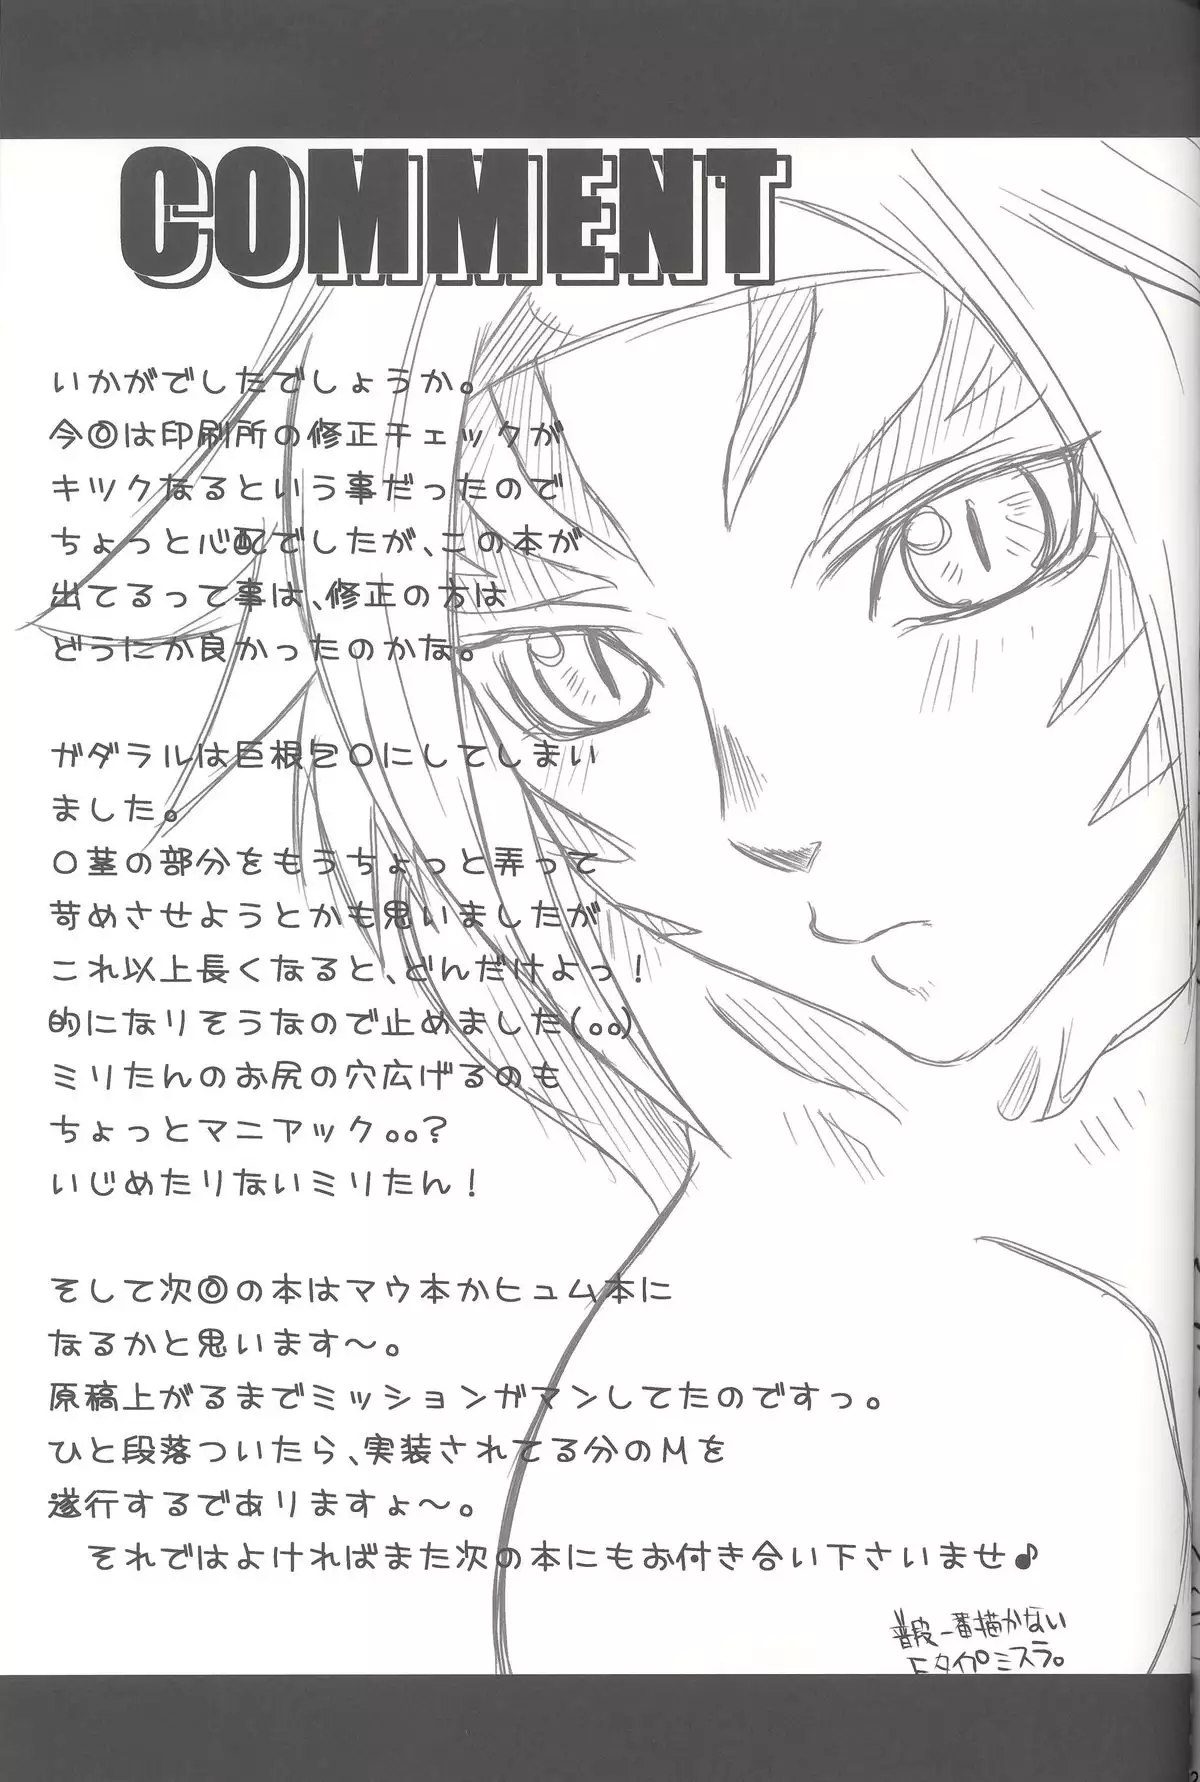 COMMENT
いかがでしたでしょうか。
今回は印刷所の修正チェックが
キツクなるという事だったので
ちょっと心配でしたが、この本が
出てるって事は、修正の方は
どうにか良かったのかな。
ガダラルは巨根包〇にしてしまい
ました。
〇茎の部分をもうちょっと弄って
苛めさせようとかも思いましたが
これ以上長くなると、どんだけよっ！
的になりそうなので止めました(。。)
ミリたんのお尻の穴広げるのも
ちょっとマニアック。。？
いじめたりないミリたん！
そして次回の本はマウ本かヒュム本に
なるかと思います〜。
原稿上がるまでミッションガマンしてたのですっ。
ひと段落ついたら、実装されてる分のMを
遂行するでありますょ〜。
それではよければまた次の本にもお付き合い下さいませ♪
普段一番描かない
Fタイプミスラ。